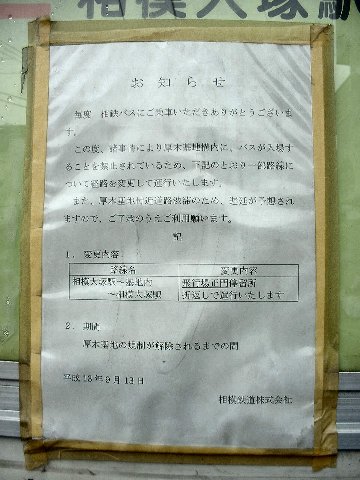 相模大塚駅
お知らせ
毎度　相鉄バスにご乗車いただきありがとうございま
す。
この度、諸事情により厚木基地構内に、バスが入場す
ることを禁止されているため、下記のとおり一部路線に
ついて経路を変更して運行いたします。
また、厚木基地付近道路渋滞のため、遅延が予想され
ますので、ご了承のうえご利用願います。
記
1．変更内容
路線名　変更内容
相模大塚駅～基地内　飛行場正門停留所
～相模大塚駅　折返しで運行いたします
2．期間
厚木基地の規制が解除されるまでの間
平成13年9月13日
相模鉄道株式会社